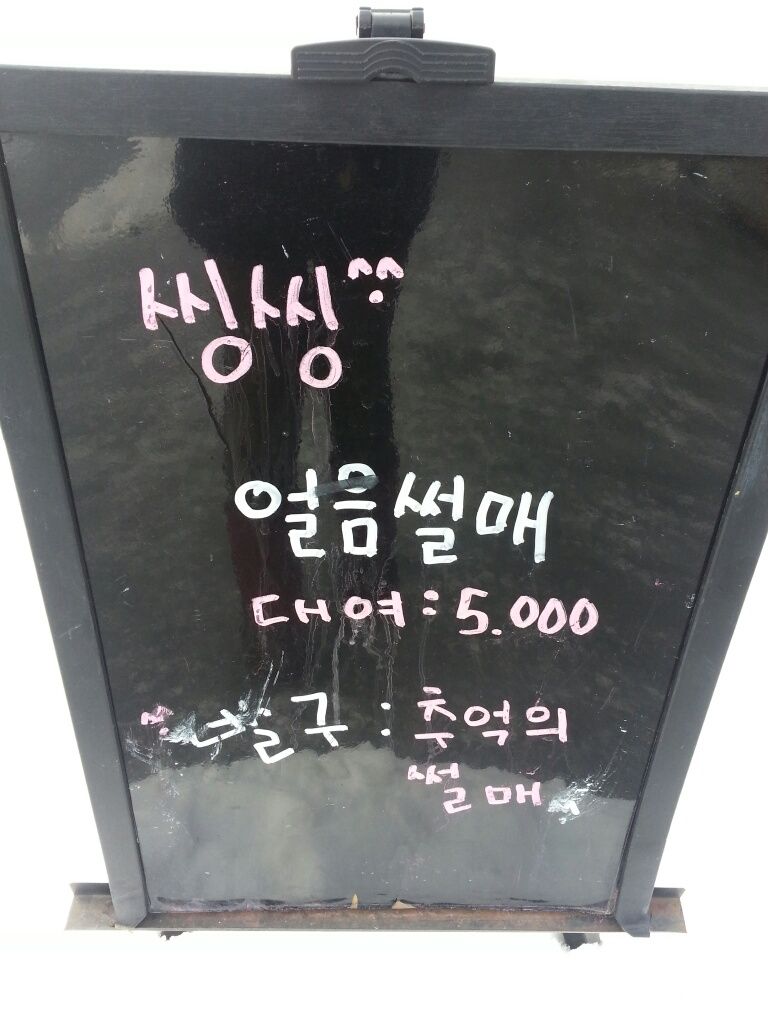 씽씽^^
얼음썰매
대여:5.000
: 추억의
썰매